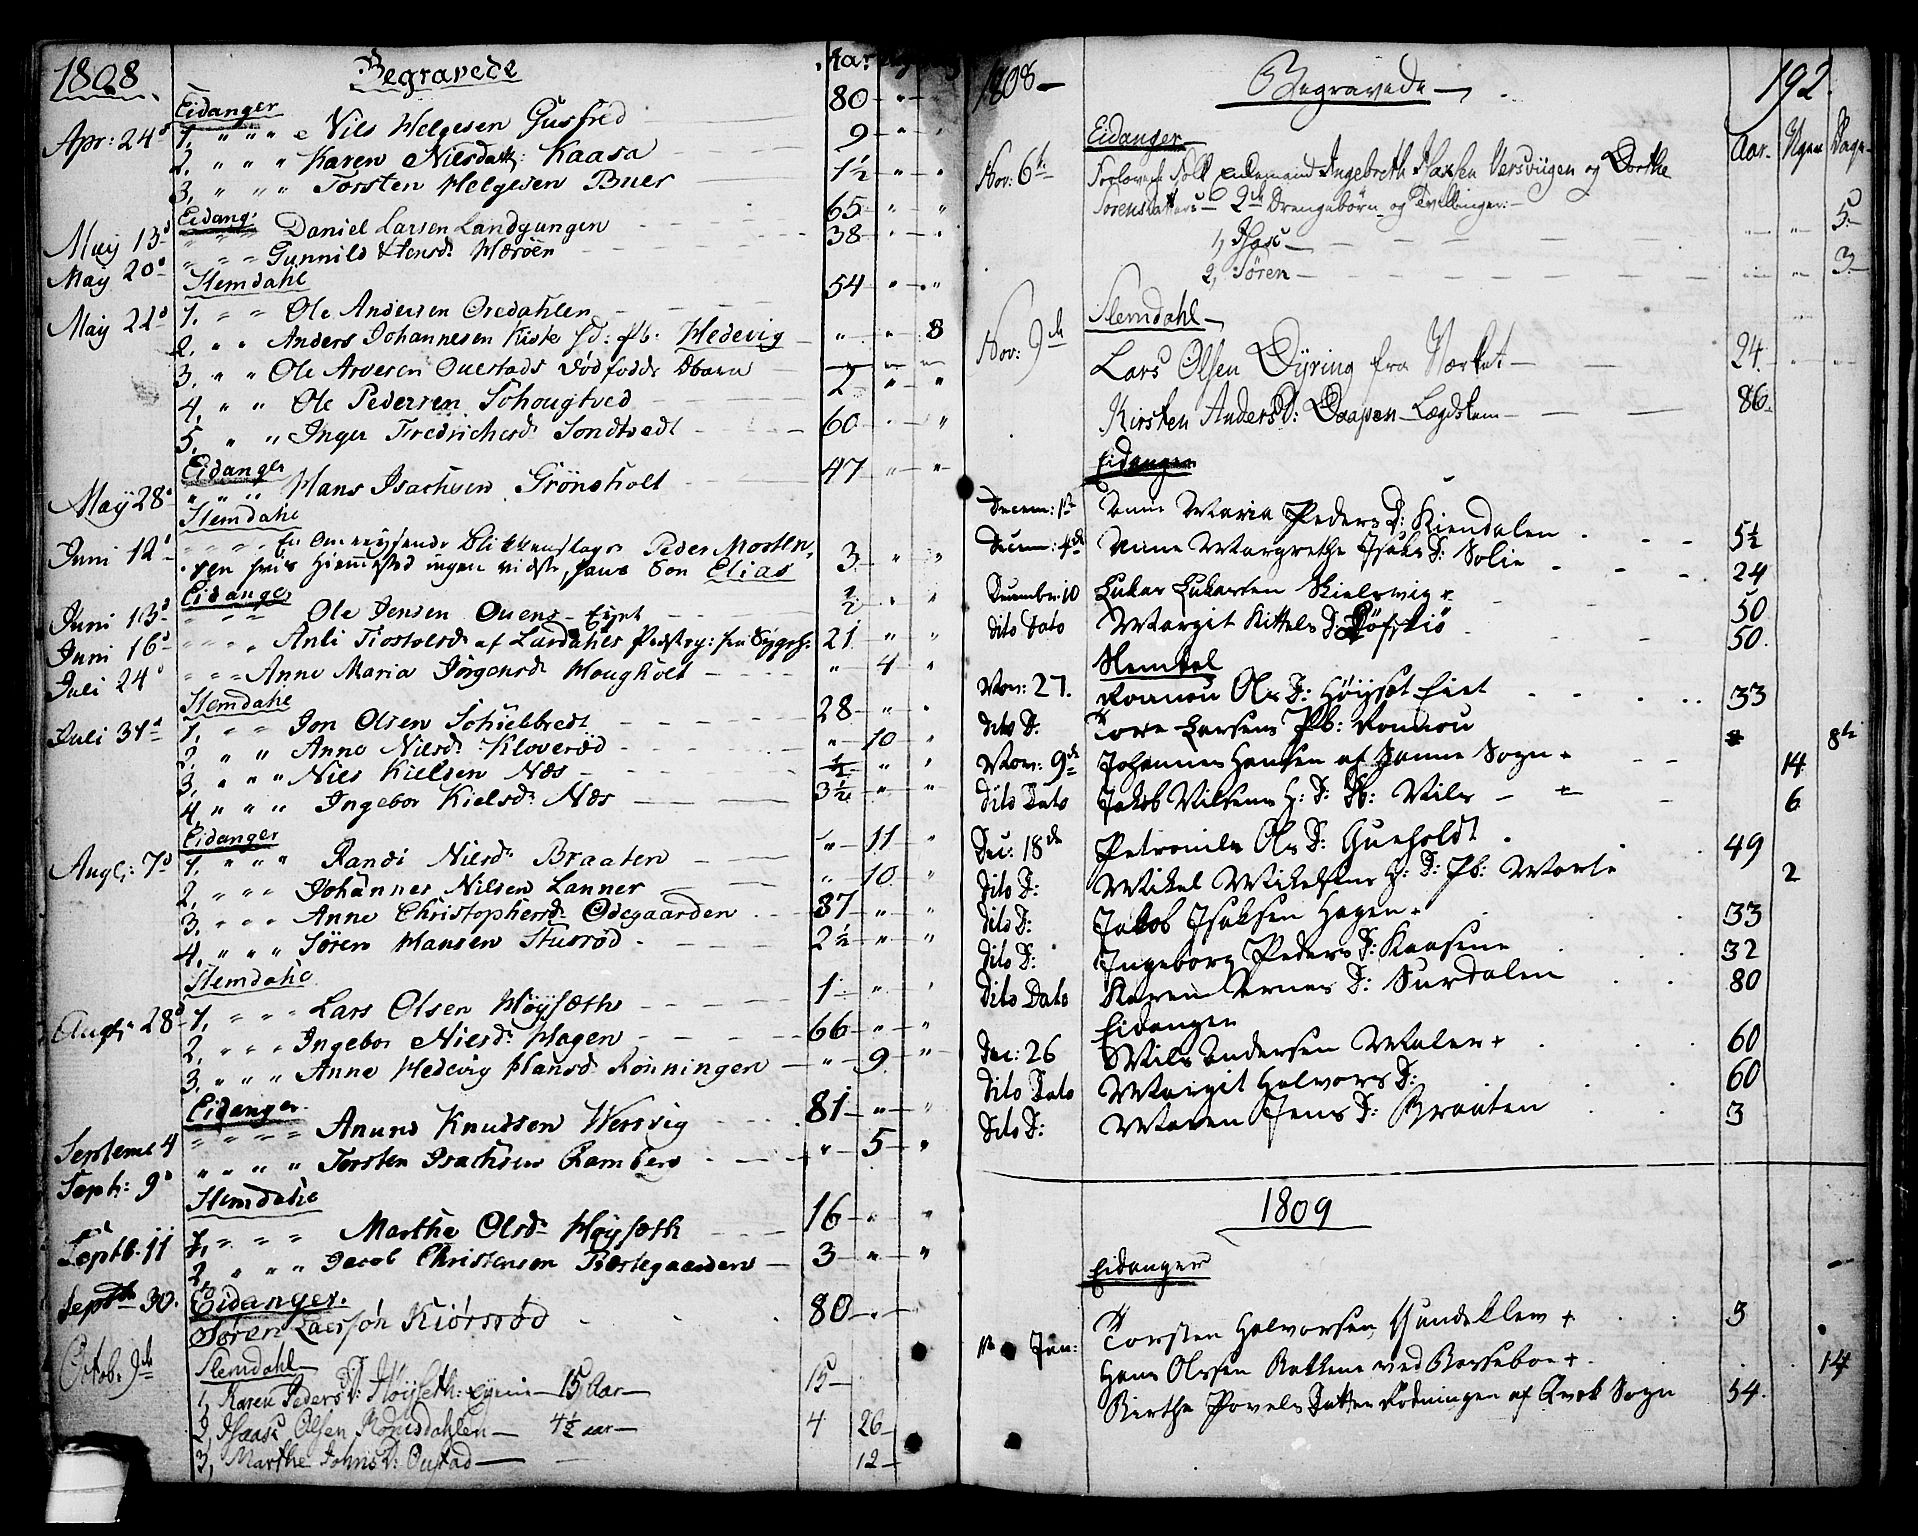 1808. Begravede Aar
Eidanger
Apr: 24d 1, " " " Nils Helgesen Gusfred 80 " "
2, " " " Karen Nilsdatt: Kaasa 9 " "
3, " " " Torsten Helgesen Buer 1½ " "
Eidang:
May 13d " " " Daniel Larsen Landgungen 65 " "
May 20d " " " Gunnild Hensd: Herøen 38 " "
Slemdahl
May 22d 1. " " Ole Andersen Oredahlen 54 " "
2. " " Anders Johannesen Kiste hd: fb: Hedevig " " 8
3, " " Ole Arvesen Ouestads Dødfødde Dbarn — — —
4, " " Ole Pedersen Schougtved 2 " "
5, " " Inger Fredrichsd: Sondtvedt 60 " "
Eidanger
May 28d " " " Hans Isachsen Grönsholt 47 " "
Slemdahl
Juni 12d " " " En omreysende Blikkenslager Peder Morten
sen hvis Hiemsted ingen vidste, hans Søn Elias 3 " "
Eidanger
Juni 13d " " " Ole Jensen Ouens Eyet ½ " "
Juni 16d " " " Anli Tiostolsd: af Lardahls Præstegj: 21 " "
Juli 24d " " " Anne Maria Jörgensd: Hougholt " 4 "
Slemdahl
Juli 31d 1, " " Jon Olsen Schielbredt 28 " "
2, " " Anne Nilsd: Kloverød " 10 "
3, " " " Niels Kielsen Næs ½ " "
4, " " " Ingebor Kielsd: Næs 3½ " "
Eidanger
Aug: 7d 1, " " " Randi Nielsd: Braaten " 11 "
2, " " " Johannes Nilsen Lanner " 10 "
3, " " " Anne Christophersd: Ødegaarden 87 " "
4, " " " Søren Hansen Stusrød 2½ " "
Slemdahl
Aug: 28d 1, " " " Lars Olsen Høysæth 1 " "
2, " " " Ingebor Nielsd: Hagen 66 " "
3, " " " Anne Hedevig Hansd: Rønningen " 9 "
Eidanger
Septeme 4 " " " " Anund Knudsen Versvig 81 " "
Septr: 9d " " " " Torsten Isachsen Ramberg " 5 "
Slemdahl
Septb. 11 1, " " " Marthe Olsd: Høysæth 16 " "
2, " " " Jacob Christensen Bærtegaarden 3 " "
Septbr 30. Eidanger. 80
Søren Larssøn Kiörsrød
Octob. 9de Slemdahl
1, Karen Pedersd: Høyseth: Eyeni 15 Aar 15
2, Isaac Olsen Romsdahlen 4½ aar 4 26
3, Marthe Johnsd: Oustad 12
1808 Begravede 192.
Eidanger Aar. Ugen Dage
Nov: 6te Forlovede Folk Enkemand Ingebreth Isaksen Versviigen og Dorthe
Sorensdatters 2de Drengebørn og Tvillinger:
1, Isac 5
2, Søren 3
Slemdahl
Nov: 9de Lars Olsen Dyring fra Værket 24
Kirsten Andersd: Daapen Lægdslem 86
Eidanger
Decem: 1te Anne Maria Peders D: Kiendalen 5½
Decem: 4de Anne Margrethe Isaks D: Solie 24
December 10 Lukas Lukassen Skielsvig 50
dito Dato Margit Kittels D: 50.
Slemdal
Nov: 27. Ronnou Ols D: Høyset Eiet 33
dito D: Tore Larsens Pb: Ronnou 8te
Nov: 9de Johannes Hansen af Sanne Sogn 14
dito Dato Jakob Nilsens H: D: Db: Nils 6
Dec: 18de Petronila Ols D: Gueholdt 49
dito D: Mikel Mikelsens H: D: Pb: Marte 2
dito D: Jakob Isaksen Hagen 33
dito D: Ingeborg Peders D: Kaasene 32
dito Dato Karen Arnes D: Surdalen 80
Eidanger
Dec: 26 Nils Andersen Malen 60
dito Dato Margit Halvors D: 60
dito D: Maren Jens D: Braaten 3
1809
Eidanger
1te Jan: Torsten Halvorsen Gundeklew + 3
Hans Olssen Bakkene ved Basseboe + 14
Birthe Povels Datter Rødningen af Qvek Sogn 54.